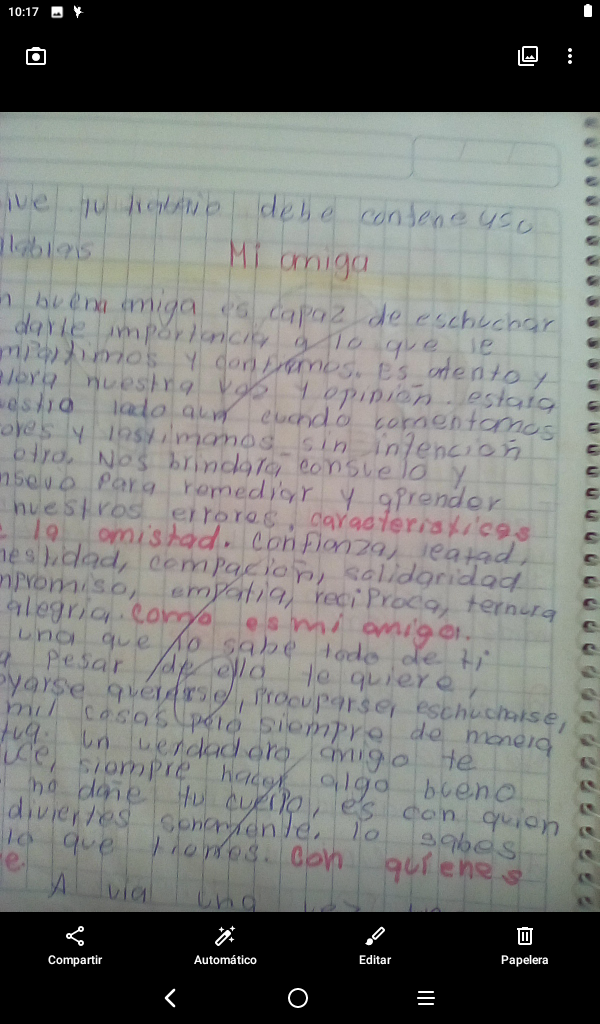 10:17
debe contene uso
Mi amiga
buena amiga es capaz de eschuchar
darle importancia a lo que le
y confiamos. Es atento y
nuestra voz y opinión. estara
lado aun cuando comentamos
y lastimamos sin intención
otro. Nos brindara consuelo y
para remediar y aprender
nuestros errores. caracteristicas
la amistad. confianza, leatad,
compación, solidaridad
empatia, reciproca, ternura
alegria. como es mi amiga.
una que lo sabe todo de ti
pesar de ello te quiere,
quererse, procuparse, eschucharse,
mil cosas pero siempre de manera
un verdadero amigo te
siempre hacer algo bueno
no dañe tu cuerpo, es con quien
diviertes sanamente. lo sabes
lo que tienes. con quienes
A via una
Compartir
Automático
Editar
Papelera